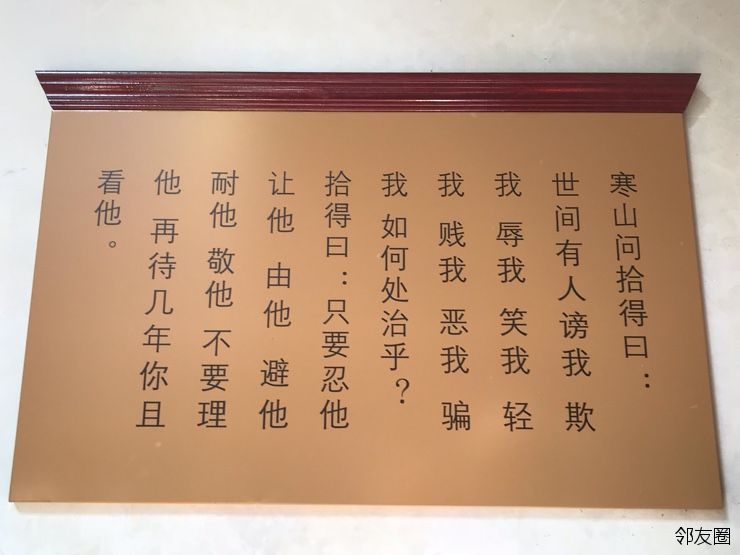 寒山问拾得曰：
世间有人谤我 欺
我 辱我 笑我 轻
我 贱我 恶我 骗
我 如何处治乎？
拾得曰：只要忍他
让他 由他 避他
耐他 敬他 不要理
他 再待几年你且
看他。
邻友圈